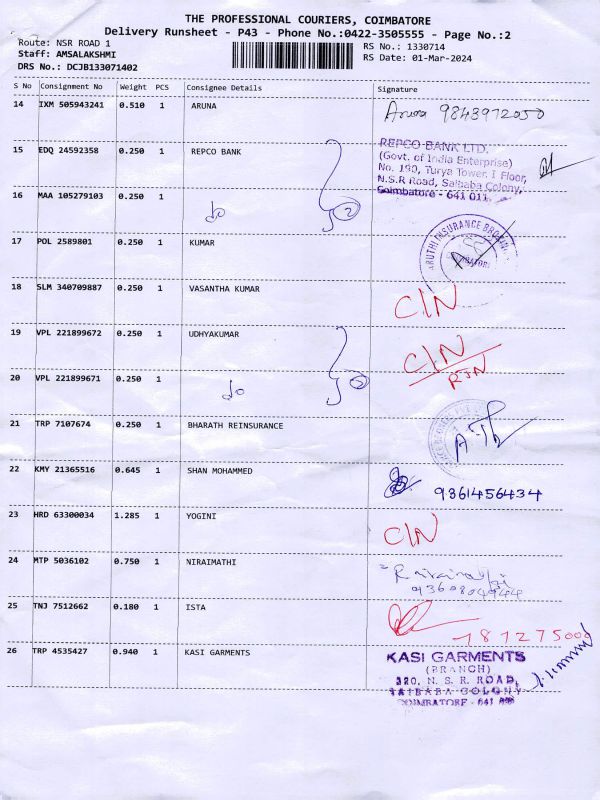 THE PROFESSIONAL COURIERS, COIMBATORE
Delivery Runsheet - P43 - Phone No.:0422-3505555 - Page No.:2
Route: NSR ROAD 1
RS No.: 1330714
Staff: AMSALAKSHMI
RS Date: 01-Mar-2024
DRS No.: DCJB133071402
S No Consignment No Weight PCS Consignee Details Signature
14 IXM 505943241 0.510 1 ARUNA Aruna 9843972050
15 EDQ 24592358 0.250 1 REPCO BANK
REPCO BANK LTD.
(Govt. of India Enterprise)
No. 190, Turya Tower, I Floor,
N.S.R Road, Saibaba Colony,
Coimbatore - 641 011.
16 MAA 105279103 0.250 1 do 2
17 POL 2589801 0.250 1 KUMAR
INSURANCE
18 SLM 340709887 0.250 1 VASANTHA KUMAR C/N
19 VPL 221899672 0.250 1 UDHYAKUMAR C/N
RTN
20 VPL 221899671 0.250 1 do 2
21 TRP 7107674 0.250 1 BHARATH REINSURANCE
22 KMY 21365516 0.645 1 SHAN MOHAMMED 9861456434
23 HRD 63300034 1.285 1 YOGINI C/N
24 MTP 5036102 0.750 1 NIRAIMATHI
9360804944
25 TNJ 7512662 0.180 1 ISTA
26 TRP 4535427 0.940 1 KASI GARMENTS
KASI GARMENTS
(BRANCH)
320, N. S. R. ROAD,
SAIBABA COLONY
COIMBATORE - 641